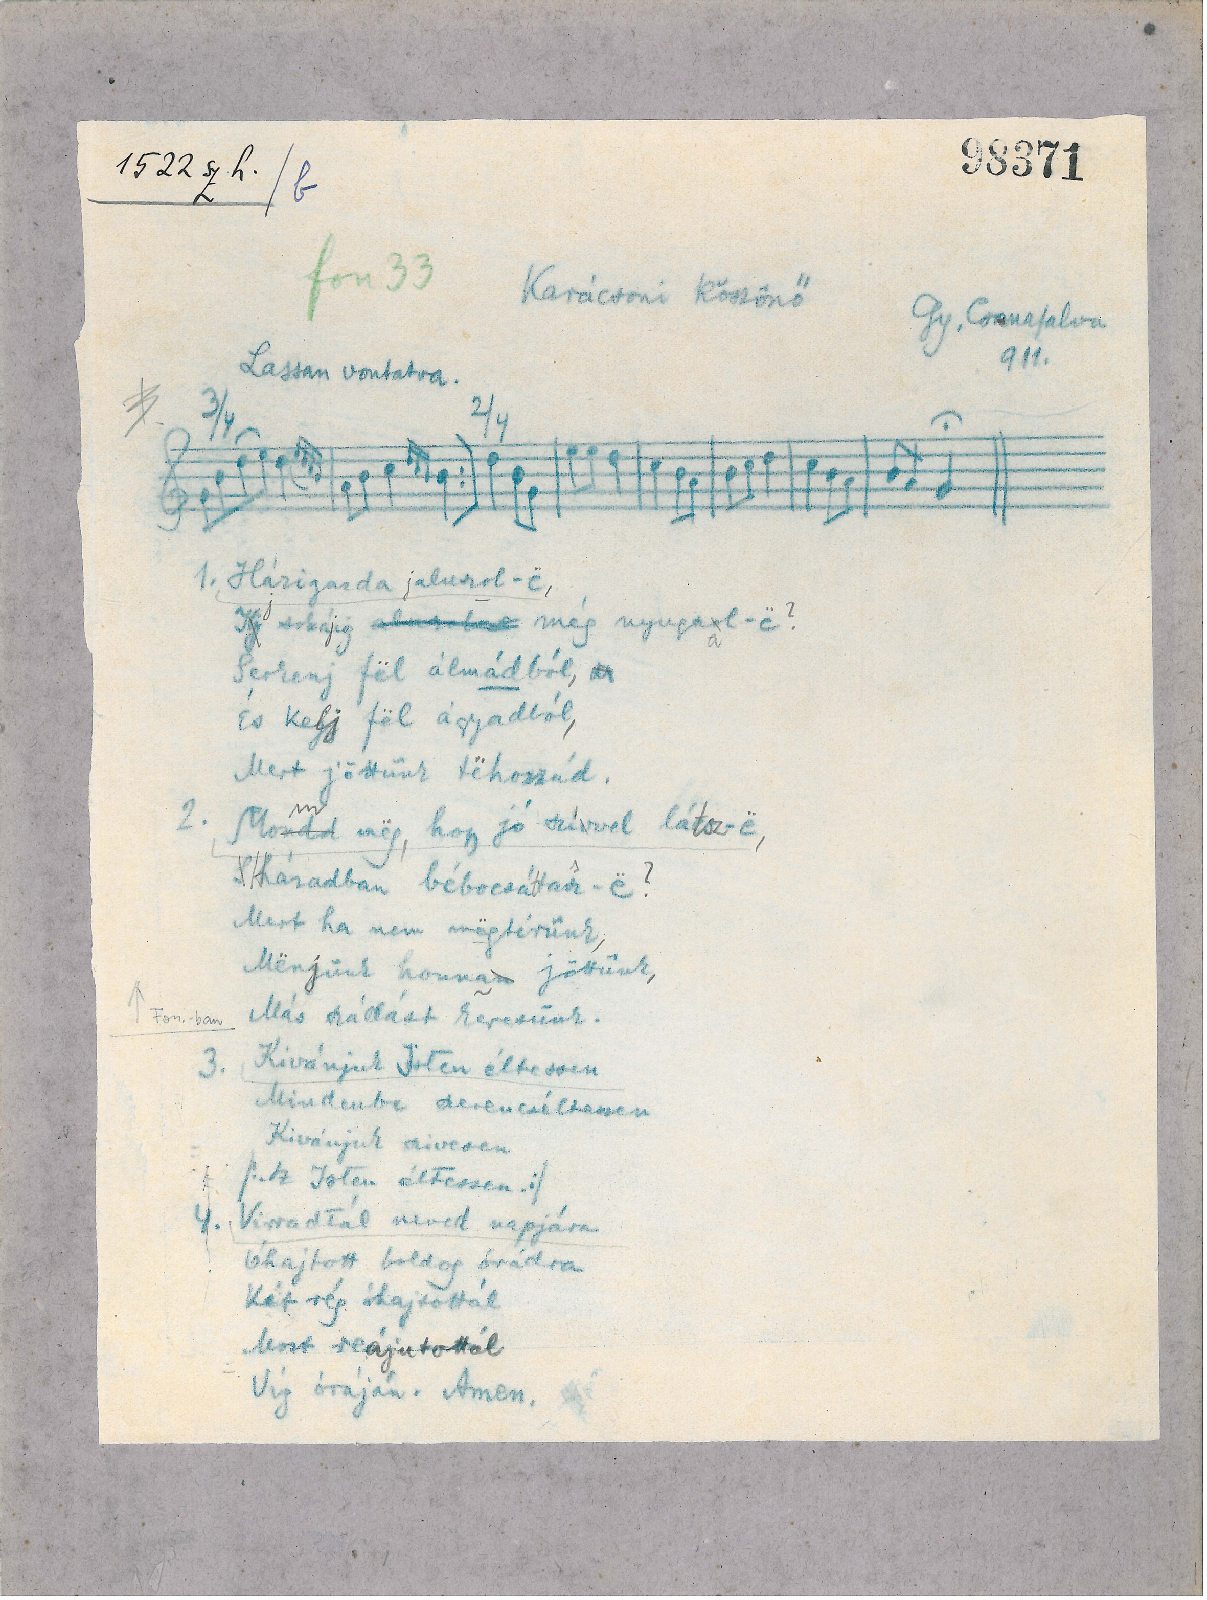 1522 sz. h. /b
98371
fon 33
Karácsoni Köszönő
Gy. Csomafalva
911.
Lassan vontatva.
3/4
2/4
1. Házigazda jaluszol-ë,
még nyugszal-ë?
Serkenj fël álmádból,
És kelj fël ágyadból,
Mert jöttünk tëhozzád.
2. Mondd mëg, hogy jó szívvel látsz-ë,
S házadban bébocsáttasz-ë?
Mert ha nem mëgtérünk,
Mënjünk honnan jöttünk,
Fon.-ban
Más szállást keresünk.
3. Kivánjuk Isten éltessen
Mindenbe szerencséltessen
Kivánjuk szivesen
Isten éltessen :/
4. Virradtál neved napjára
Óhajtott boldog órádra
Kit rég óhajtottál
Most reájutottál
Víg óráján. Amen.